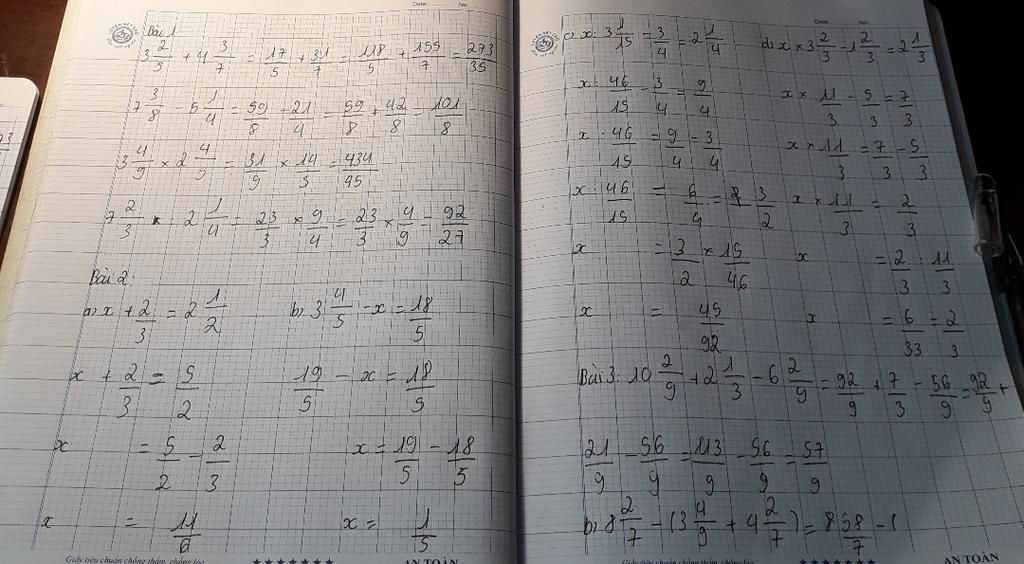 Date No.
Bài 1
3 2/5 + 4 3/7 = 17/5 + 31/7 = 118/5 + 155/7 = 273/35
7 3/8 - 5 1/4 = 59/8 - 21/4 = 59/8 + 42/8 = 101/8
3 4/9 × 2 4/5 = 31/9 × 14/5 = 434/45
7 2/3 : 2 1/4 = 23/3 × 9/4 = 23/3 × 4/9 = 92/27
Bài 2:
a) x + 2/3 = 2 1/2 b) 3 4/5 - x = 18/5
x + 2/3 = 5/2 19/5 - x = 18/5
x = 5/2 - 2/3 x = 19/5 - 18/5
x = 11/6 x = 1/5
Giấy tiêu chuẩn chống thấm, chống lóa ★★★★★★★ AN TOÀN
Date No
c) x : 3 1/15 = 3/4 = 2 1/4 d) x × 3 2/3 - 1 2/3 = 2 1/3
x : 46/15 - 3/4 = 9/4 x × 11/3 - 5/3 = 7/3
x : 46/15 = 9/4 - 3/4 x × 11/3 = 7/3 - 5/3
x : 46/15 = 6/4 = 3/2 x × 11/3 = 2/3
x = 3/2 × 15/46 x = 2/3 : 11/3
x = 45/92 x = 6/33 = 2/3
Bài 3: 10 2/9 + 2 1/3 - 6 2/9 = 92/9 + 7/3 - 56/9 = 92/9 +
21/9 - 56/9 = 113/9 - 56/9 = 57/9
b) 8 2/7 - (3 4/9 + 4 2/7) = 8 58/7 - (
Giấy tiêu chuẩn chống thấm, chống lóa ★★★★★★★ AN TOÀN